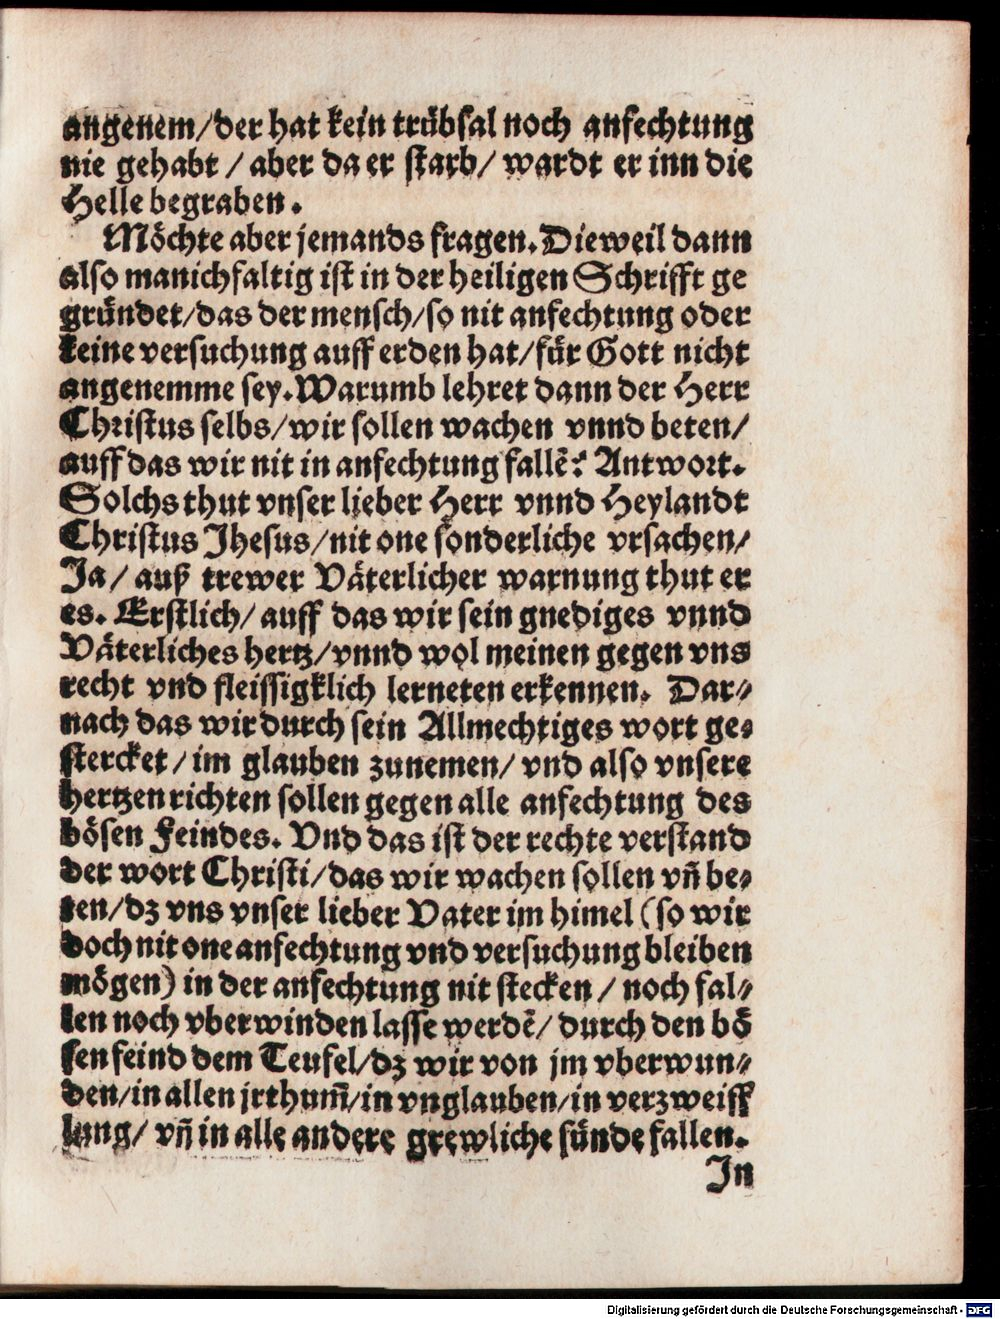 angenem/der hat kein trübsal noch anfechtung
nie gehabt / aber da er starb/ wardt er inn die
Helle begraben.
Möchte aber jemands fragen. Dieweil dann
also manichfaltig ist in der heiligen Schrifft ge
gründet/das der mensch/so nit anfechtung oder
keine versuchung auff erden hat/für Gott nicht
angenemme sey. Warumb lehret dann der Herr
Christus selbs/wir sollen wachen vnnd beten/
auff das wir nit in anfechtung fallẽ? Antwort.
Solchs thut vnser lieber Herr vnnd Heylandt
Christus Jhesus/nit one sonderliche vrsachen/
Ja/ auß trewer Väterlicher warnung thut er
es. Erstlich/ auff das wir sein gnediges vnnd
Väterliches hertz/vnnd wol meinen gegen vns
recht vnd fleissigklich lerneten erkennen. Dar-
nach das wir durch sein Allmechtiges wort ge-
stercket / im glauben zunemen/ vnd also vnsere
hertzen richten sollen gegen alle anfechtung des
bösen Feindes. Vnd das ist der rechte verstand
der wort Christi/das wir wachen sollen vñ be-
ten/dz vns vnser lieber Vater im himel (so wir
doch nit one anfechtung vnd versuchung bleiben
mögen) in der anfechtung nit stecken / noch fal-
len noch vberwinden lasse werdẽ/ durch den bö
sen feind dem Teufel/dz wir von jm vberwun-
den/in allen jrthum̃/in vnglauben/in verzweiff
lung/ vñ in alle andere grewliche sünde fallen.
In
Digitalisierung gefördert durch die Deutsche Forschungsgemeinschaft - DFG